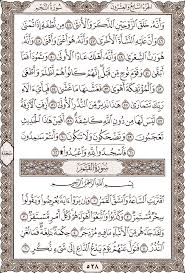 الجزء السابع والعشرون سورة النجم
وَأَنَّهُۥ خَلَقَ ٱلزَّوْجَيْنِ ٱلذَّكَرَ وَٱلْأُنثَىٰ ٤٥ مِن نُّطْفَةٍ إِذَا تُمْنَىٰ
٤٦ وَأَنَّ عَلَيْهِ ٱلنَّشْأَةَ ٱلْأُخْرَىٰ ٤٧ وَأَنَّهُۥ هُوَ أَغْنَىٰ وَأَقْنَىٰ ٤٨ وَأَنَّهُۥ
هُوَ رَبُّ ٱلشِّعْرَىٰ ٤٩ وَأَنَّهُۥٓ أَهْلَكَ عَادًا ٱلْأُولَىٰ ٥٠ وَثَمُودَا۟ فَمَآ أَبْقَىٰ
٥١ وَقَوْمَ نُوحٍ مِّن قَبْلُ إِنَّهُمْ كَانُوا۟ هُمْ أَظْلَمَ وَأَطْغَىٰ
٥٢ وَٱلْمُؤْتَفِكَةَ أَهْوَىٰ ٥٣ فَغَشَّىٰهَا مَا غَشَّىٰ ٥٤ فَبِأَىِّ ءَالَآءِ رَبِّكَ
تَتَمَارَىٰ ٥٥ هَٰذَا نَذِيرٌ مِّنَ ٱلنُّذُرِ ٱلْأُولَىٰٓ ٥٦ أَزِفَتِ ٱلْءَازِفَةُ ٥٧
لَيْسَ لَهَا مِن دُونِ ٱللَّهِ كَاشِفَةٌ ٥٨ أَفَمِنْ هَٰذَا ٱلْحَدِيثِ تَعْجَبُونَ
٥٩ وَتَضْحَكُونَ وَلَا تَبْكُونَ ٦٠ وَأَنتُمْ سَٰمِدُونَ
٦١ فَٱسْجُدُوا۟ لِلَّهِ وَٱعْبُدُوا۟ ۩ ٦٢
سورة القمر
بِسْمِ ٱللَّهِ ٱلرَّحْمَٰنِ ٱلرَّحِيمِ
ٱقْتَرَبَتِ ٱلسَّاعَةُ وَٱنشَقَّ ٱلْقَمَرُ ١ وَإِن يَرَوْا۟ ءَايَةً يُعْرِضُوا۟ وَيَقُولُوا۟
سِحْرٌ مُّسْتَمِرٌّ ٢ وَكَذَّبُوا۟ وَٱتَّبَعُوٓا۟ أَهْوَآءَهُمْ وَكُلُّ أَمْرٍ مُّسْتَقِرٌّ
٣ وَلَقَدْ جَآءَهُم مِّنَ ٱلْأَنۢبَآءِ مَا فِيهِ مُزْدَجَرٌ ٤ حِكْمَةٌۢ بَٰلِغَةٌ فَمَا تُغْنِ
ٱلنُّذُرُ ٥ فَتَوَلَّ عَنْهُمْ يَوْمَ يَدْعُ ٱلدَّاعِ إِلَىٰ شَىْءٍ نُّكُرٍ ٦
٥٢٨